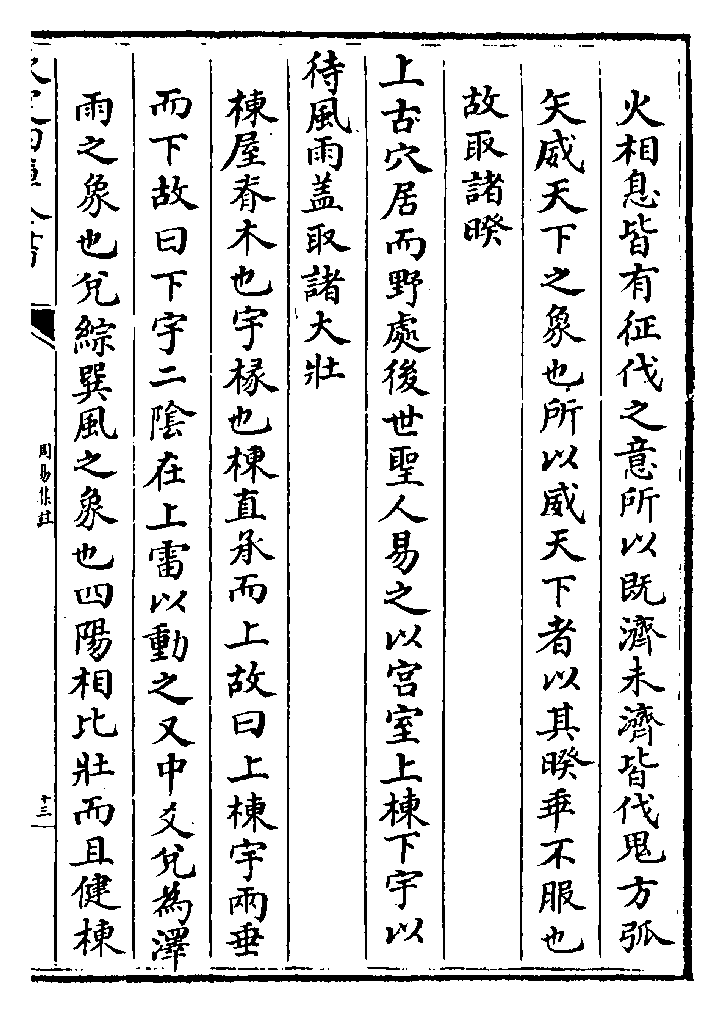 火相息皆有征伐之意所以既濟未濟皆伐鬼方弧
矢威天下之象也所以威天下者以其暌乖不服也
故取諸暌
上古穴居而野處後世聖人易之以宫室上棟下宇以
待風雨盖取諸大壯
棟屋脊木也宇椽也棟直承而上故曰上棟宇兩垂
而下故曰下宇二陰在上雷以動之又中爻兌為澤
雨之象也兌綜巽風之象也四陽相比壯而且健棟
周易集註
十三